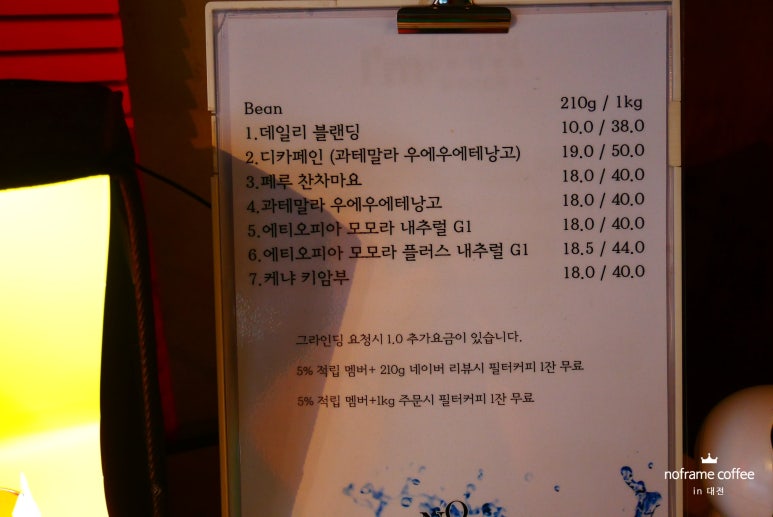 Bean 210g / 1kg
1.데일리 블랜딩 10.0 / 38.0
2.디카페인 (과테말라 우에우에테낭고) 19.0 / 50.0
3.페루 찬차마요 18.0 / 40.0
4.과테말라 우에우에테낭고 18.0 / 40.0
5.에티오피아 모모라 내추럴 G1 18.0 / 40.0
6.에티오피아 모모라 플러스 내추럴 G1 18.5 / 44.0
7.케냐 키암부 18.0 / 40.0
그라인딩 요청시 1.0 추가요금이 있습니다.
5% 적립 멤버+ 210g 네이버 리뷰시 필터커피 1잔 무료
5% 적립 멤버+1kg 주문시 필터커피 1잔 무료
noframe coffee
in 대전